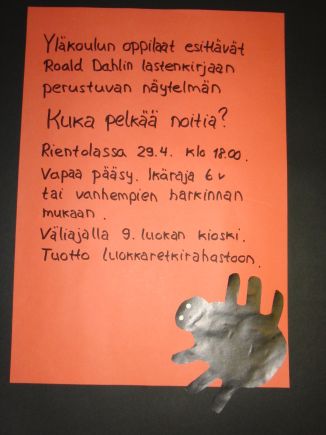 Yläkoulun oppilaat esittävät
Roald Dahlin lastenkirjaan
perustuvan näytelmän
Kuka pelkää noitia?
Rientolassa 29.4. klo 18.00.
Vapaa pääsy. Ikäraja 6 v
tai vanhempien harkinnan
mukaan.
Väliajalla 9. luokan kioski.
Tuotto luokkaretkirahastoon.